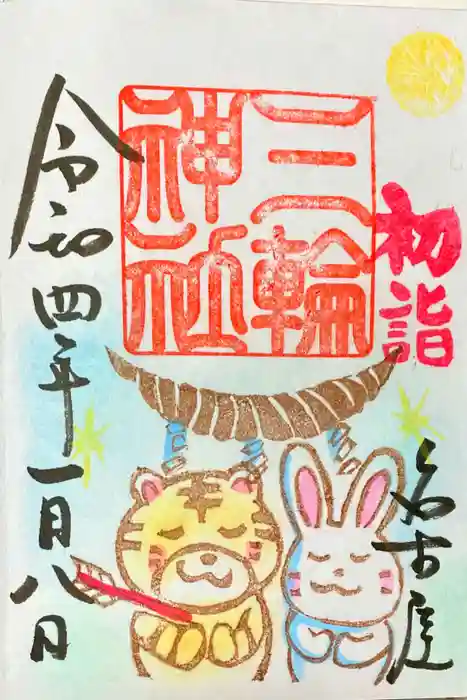 初詣
三輪
神社
名古屋
令和四年一月八日